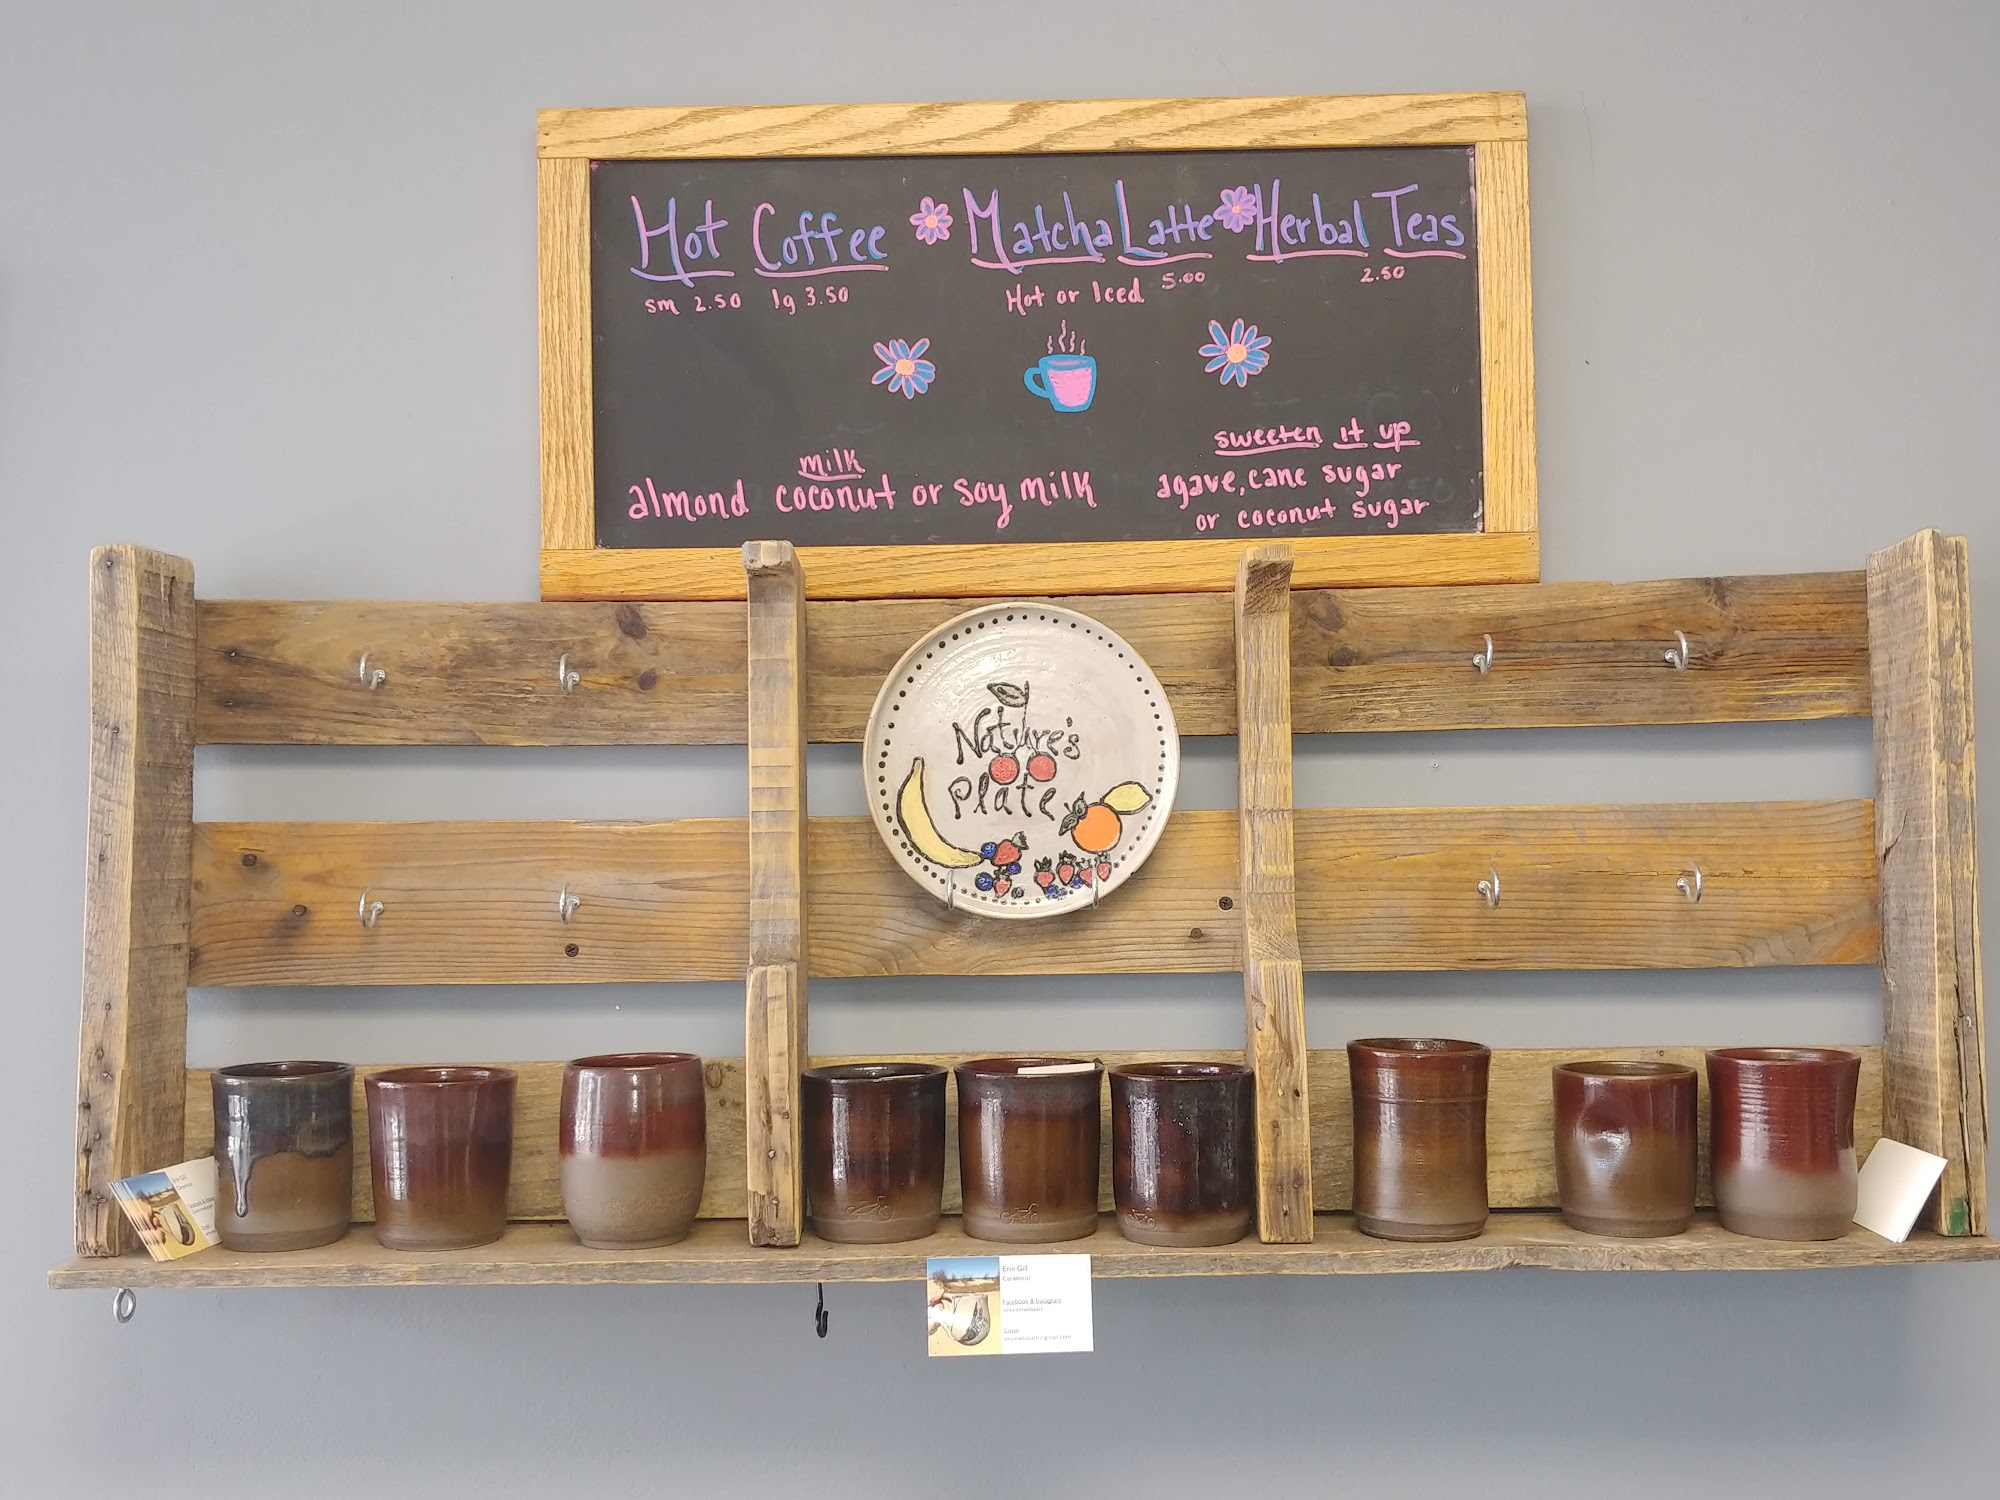 Hot Coffee Matcha Latte Herbal Teas
sm 2.50 lg 3.50 Hot or Iced 5.00 2.50
milk
almond coconut or soy milk
sweeten it up
agave, cane sugar
or coconut sugar
Nature's
Plate
Erin Gill
Ceramics
Facebook & Instagram
Email